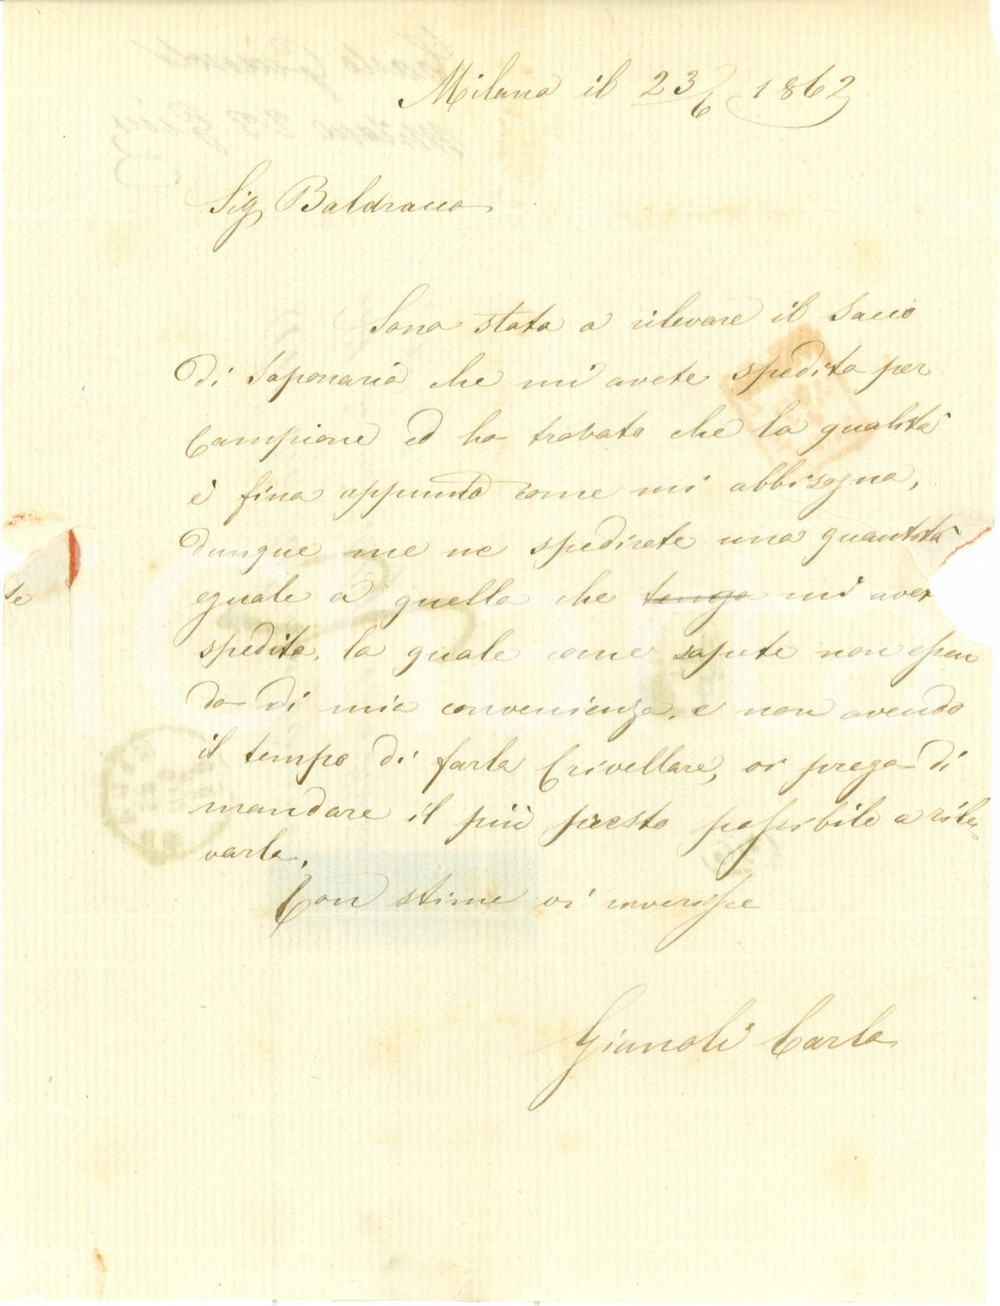 Milano il 23/6 1862
Sig Baldracco
Sono stato a rilevare il Sacco
di Saponaria che mi avete spedito per
Campione ed ho trovato che la qualità
è fina appunto come mi abbisogna,
dunque me ne spedirete una quantità
eguale a quella che tengo mi avete
spedito, la quale come sapete non essen
do di mia convenienza, e non avendo
il tempo di farla Crivellare, vi prego di
mandare il più presto possibile a rile-
varla,
Con stima vi riverisce
Gianoli Carlo